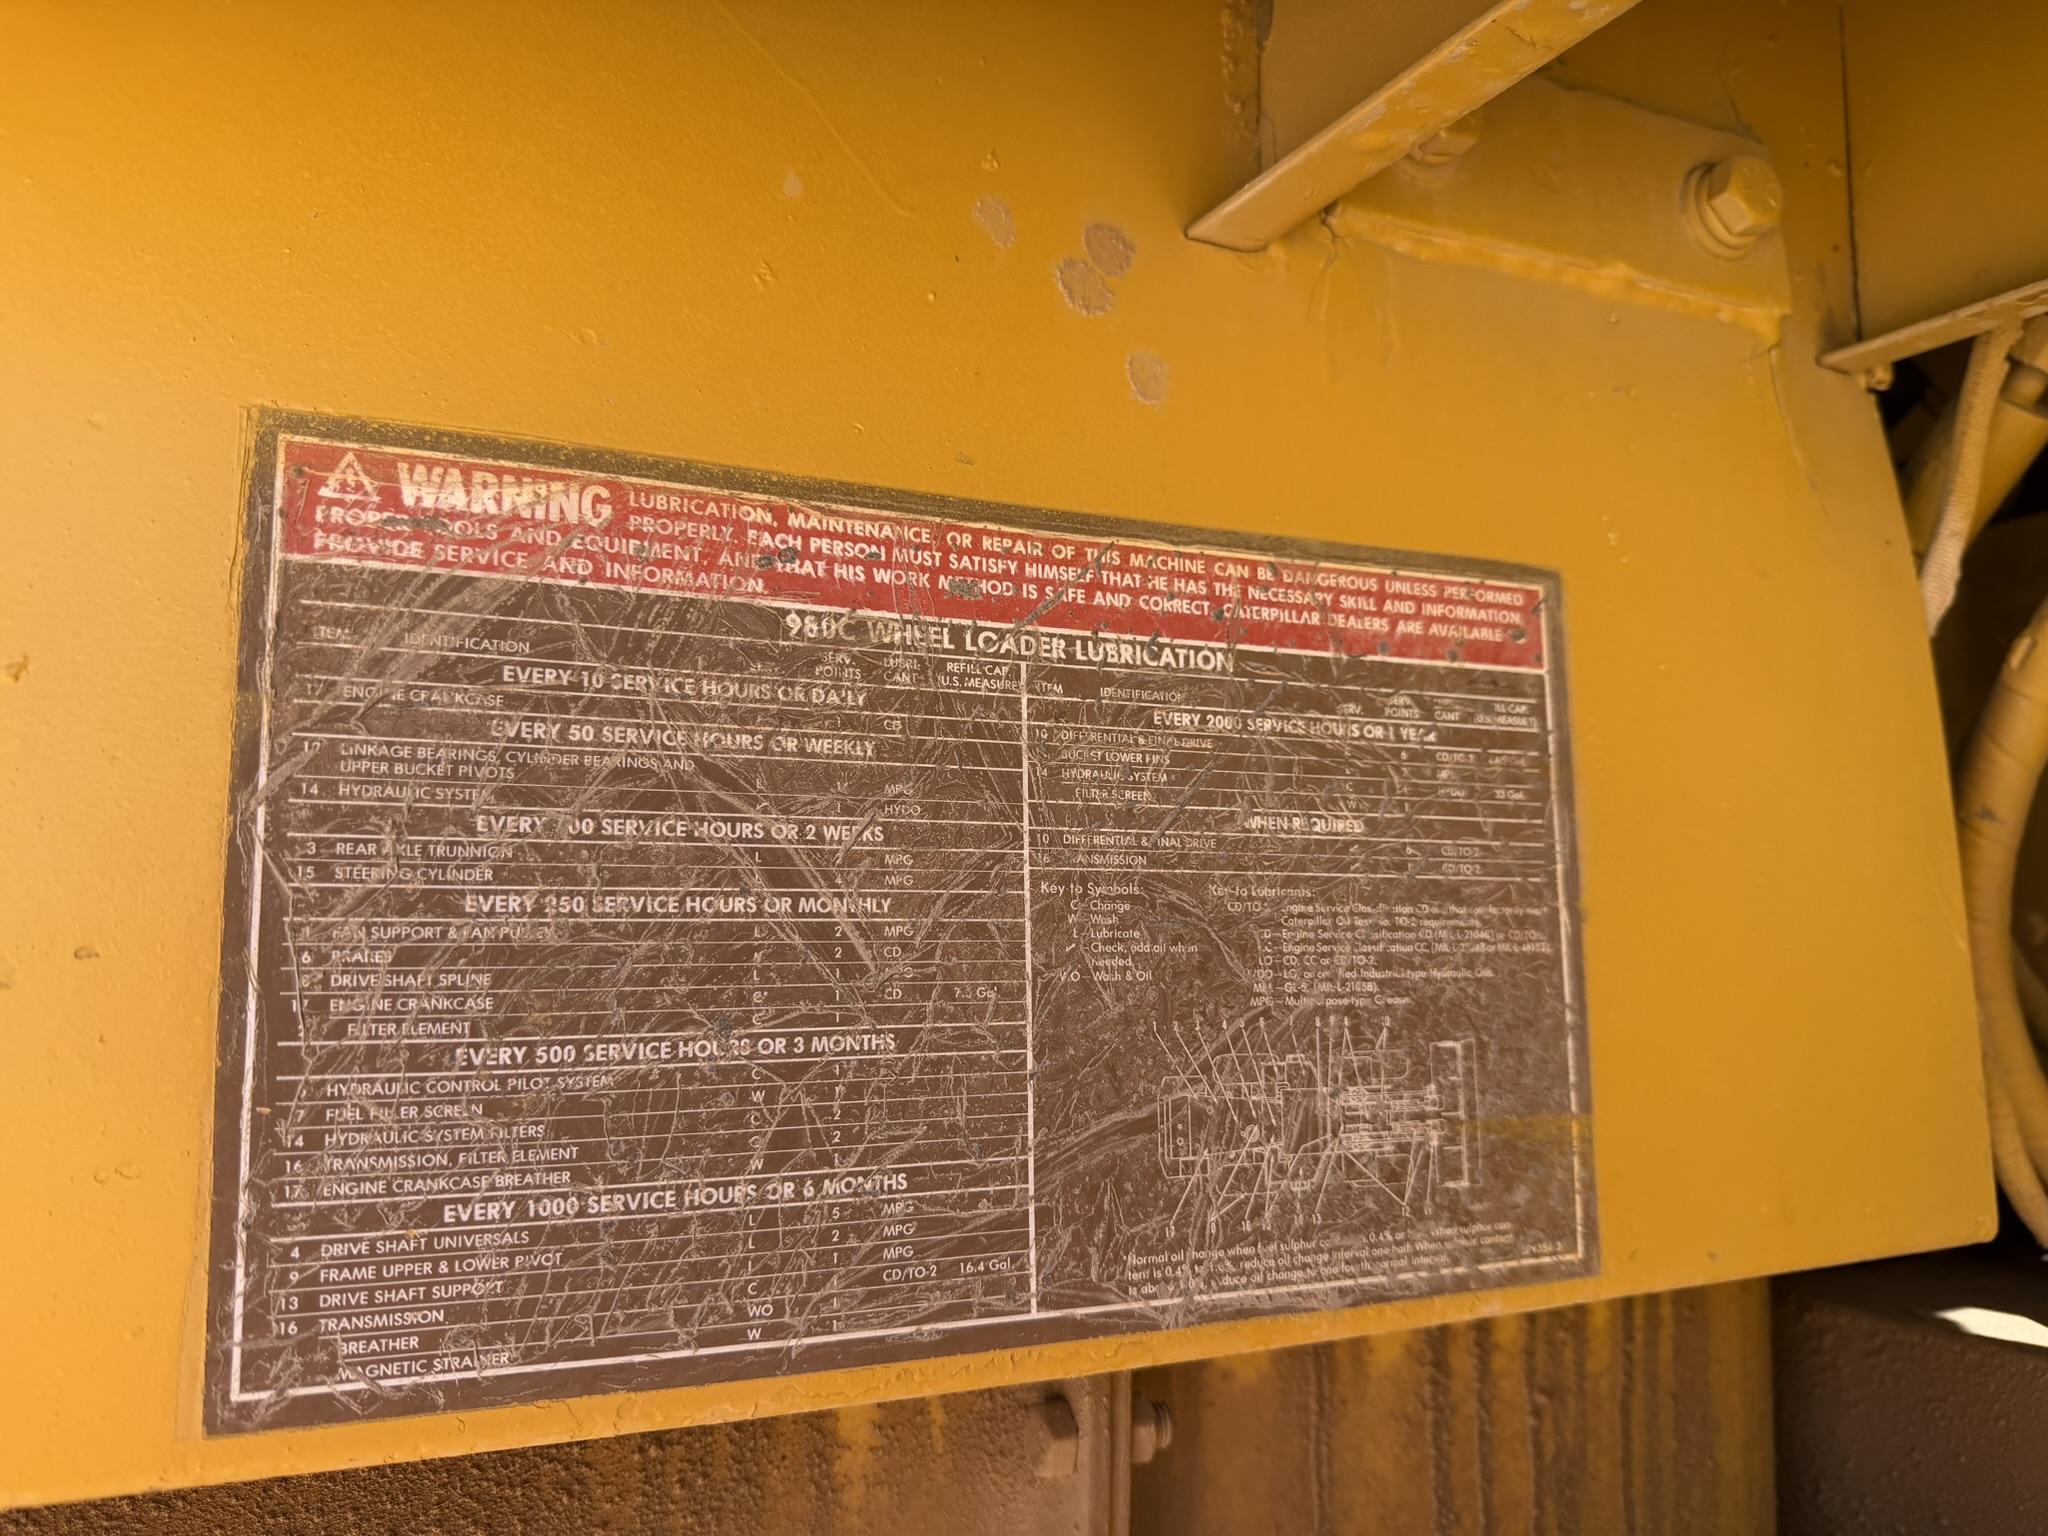 WARNING LUBRICATION, MAINTENANCE, OR REPAIR OF THIS MACHINE CAN BE DANGEROUS UNLESS PERFORMED
PROPERLY. EACH PERSON MUST SATISFY HIMSELF THAT HE HAS THE NECESSARY SKILL AND INFORMATION,
PROPER TOOLS AND EQUIPMENT, AND THAT HIS WORK METHOD IS SAFE AND CORRECT. CATERPILLAR DEALERS ARE AVAILABLE
PROVIDE SERVICE AND INFORMATION.
980C WHEEL LOADER LUBRICATION
ITEM IDENTIFICATION SERV. POINTS LUBRI- CANT REFILL CAP. (U.S. MEASURE)
EVERY 10 SERVICE HOURS OR DAILY
17 ENGINE CRANKCASE CD
EVERY 50 SERVICE HOURS OR WEEKLY
12 LINKAGE BEARINGS, CYLINDER BEARINGS AND
UPPER BUCKET PIVOTS L MPG
14 HYDRAULIC SYSTEM 1 HYDO
EVERY 100 SERVICE HOURS OR 2 WEEKS
3 REAR AXLE TRUNNION L 2 MPG
15 STEERING CYLINDER 4 MPG
EVERY 250 SERVICE HOURS OR MONTHLY
1 FAN SUPPORT & FAN PULLEY L 2 MPG
6 BRAKES 2 CD
8 DRIVE SHAFT SPLINE L 1
17 ENGINE CRANKCASE C* 1 CD Gal.
FILTER ELEMENT C 1
EVERY 500 SERVICE HOURS OR 3 MONTHS
HYDRAULIC CONTROL PILOT SYSTEM C 1
7 FUEL FILLER SCREEN W 1
14 HYDRAULIC SYSTEM FILTERS C 2
16 TRANSMISSION, FILTER ELEMENT C 2
17 ENGINE CRANKCASE BREATHER W 1
EVERY 1000 SERVICE HOURS OR 6 MONTHS
4 DRIVE SHAFT UNIVERSALS L 5 MPG
9 FRAME UPPER & LOWER PIVOT L 2 MPG
13 DRIVE SHAFT SUPPORT L 1 MPG
16 TRANSMISSION C 1 CD/TO-2 16.4 Gal.
BREATHER WO 1
MAGNETIC STRAINER W 1
ITEM IDENTIFICATION SERV. POINTS CANT CAP. (U.S. MEASURE)
EVERY 2000 SERVICE HOURS OR 1 YEAR
10 DIFFERENTIAL & FINAL DRIVE 6 CD/TO-2
BUCKET LOWER PINS
14 HYDRAULIC SYSTEM C 1 HYDO 33 Gal.
FILTER SCREEN W 1
WHEN REQUIRED
10 DIFFERENTIAL & FINAL DRIVE 6 CD/TO-2
16 TRANSMISSION CD/TO-2
Key to Symbols:
C – Change
W – Wash
L – Lubricate
✓ – Check, add oil when
needed.
WO – Wash & Oil
Key to Lubricants:
CD/TO-2 Engine Service Classification CD oils that satisfactorily meet
Caterpillar Oil Test No. TO-2 requirements.
CD – Engine Service Classification CD (MIL-L-2104C) or CD/TO-2.
CC – Engine Service Classification CC,
LO – CD, CC or CD/TO-2.
HYDO – LO, or certified Industrial type Hydraulic Oils.
GL-5, (MIL-L-2105B).
MPG – Multipurpose-type Grease
1 2 3 4
*Normal oil change when fuel sulphur content is 0.4% or less. When sulphur con-
tent is 0.4% to reduce oil change interval one-half. When sulphur content
is above reduce oil change to one-fourth normal interval.